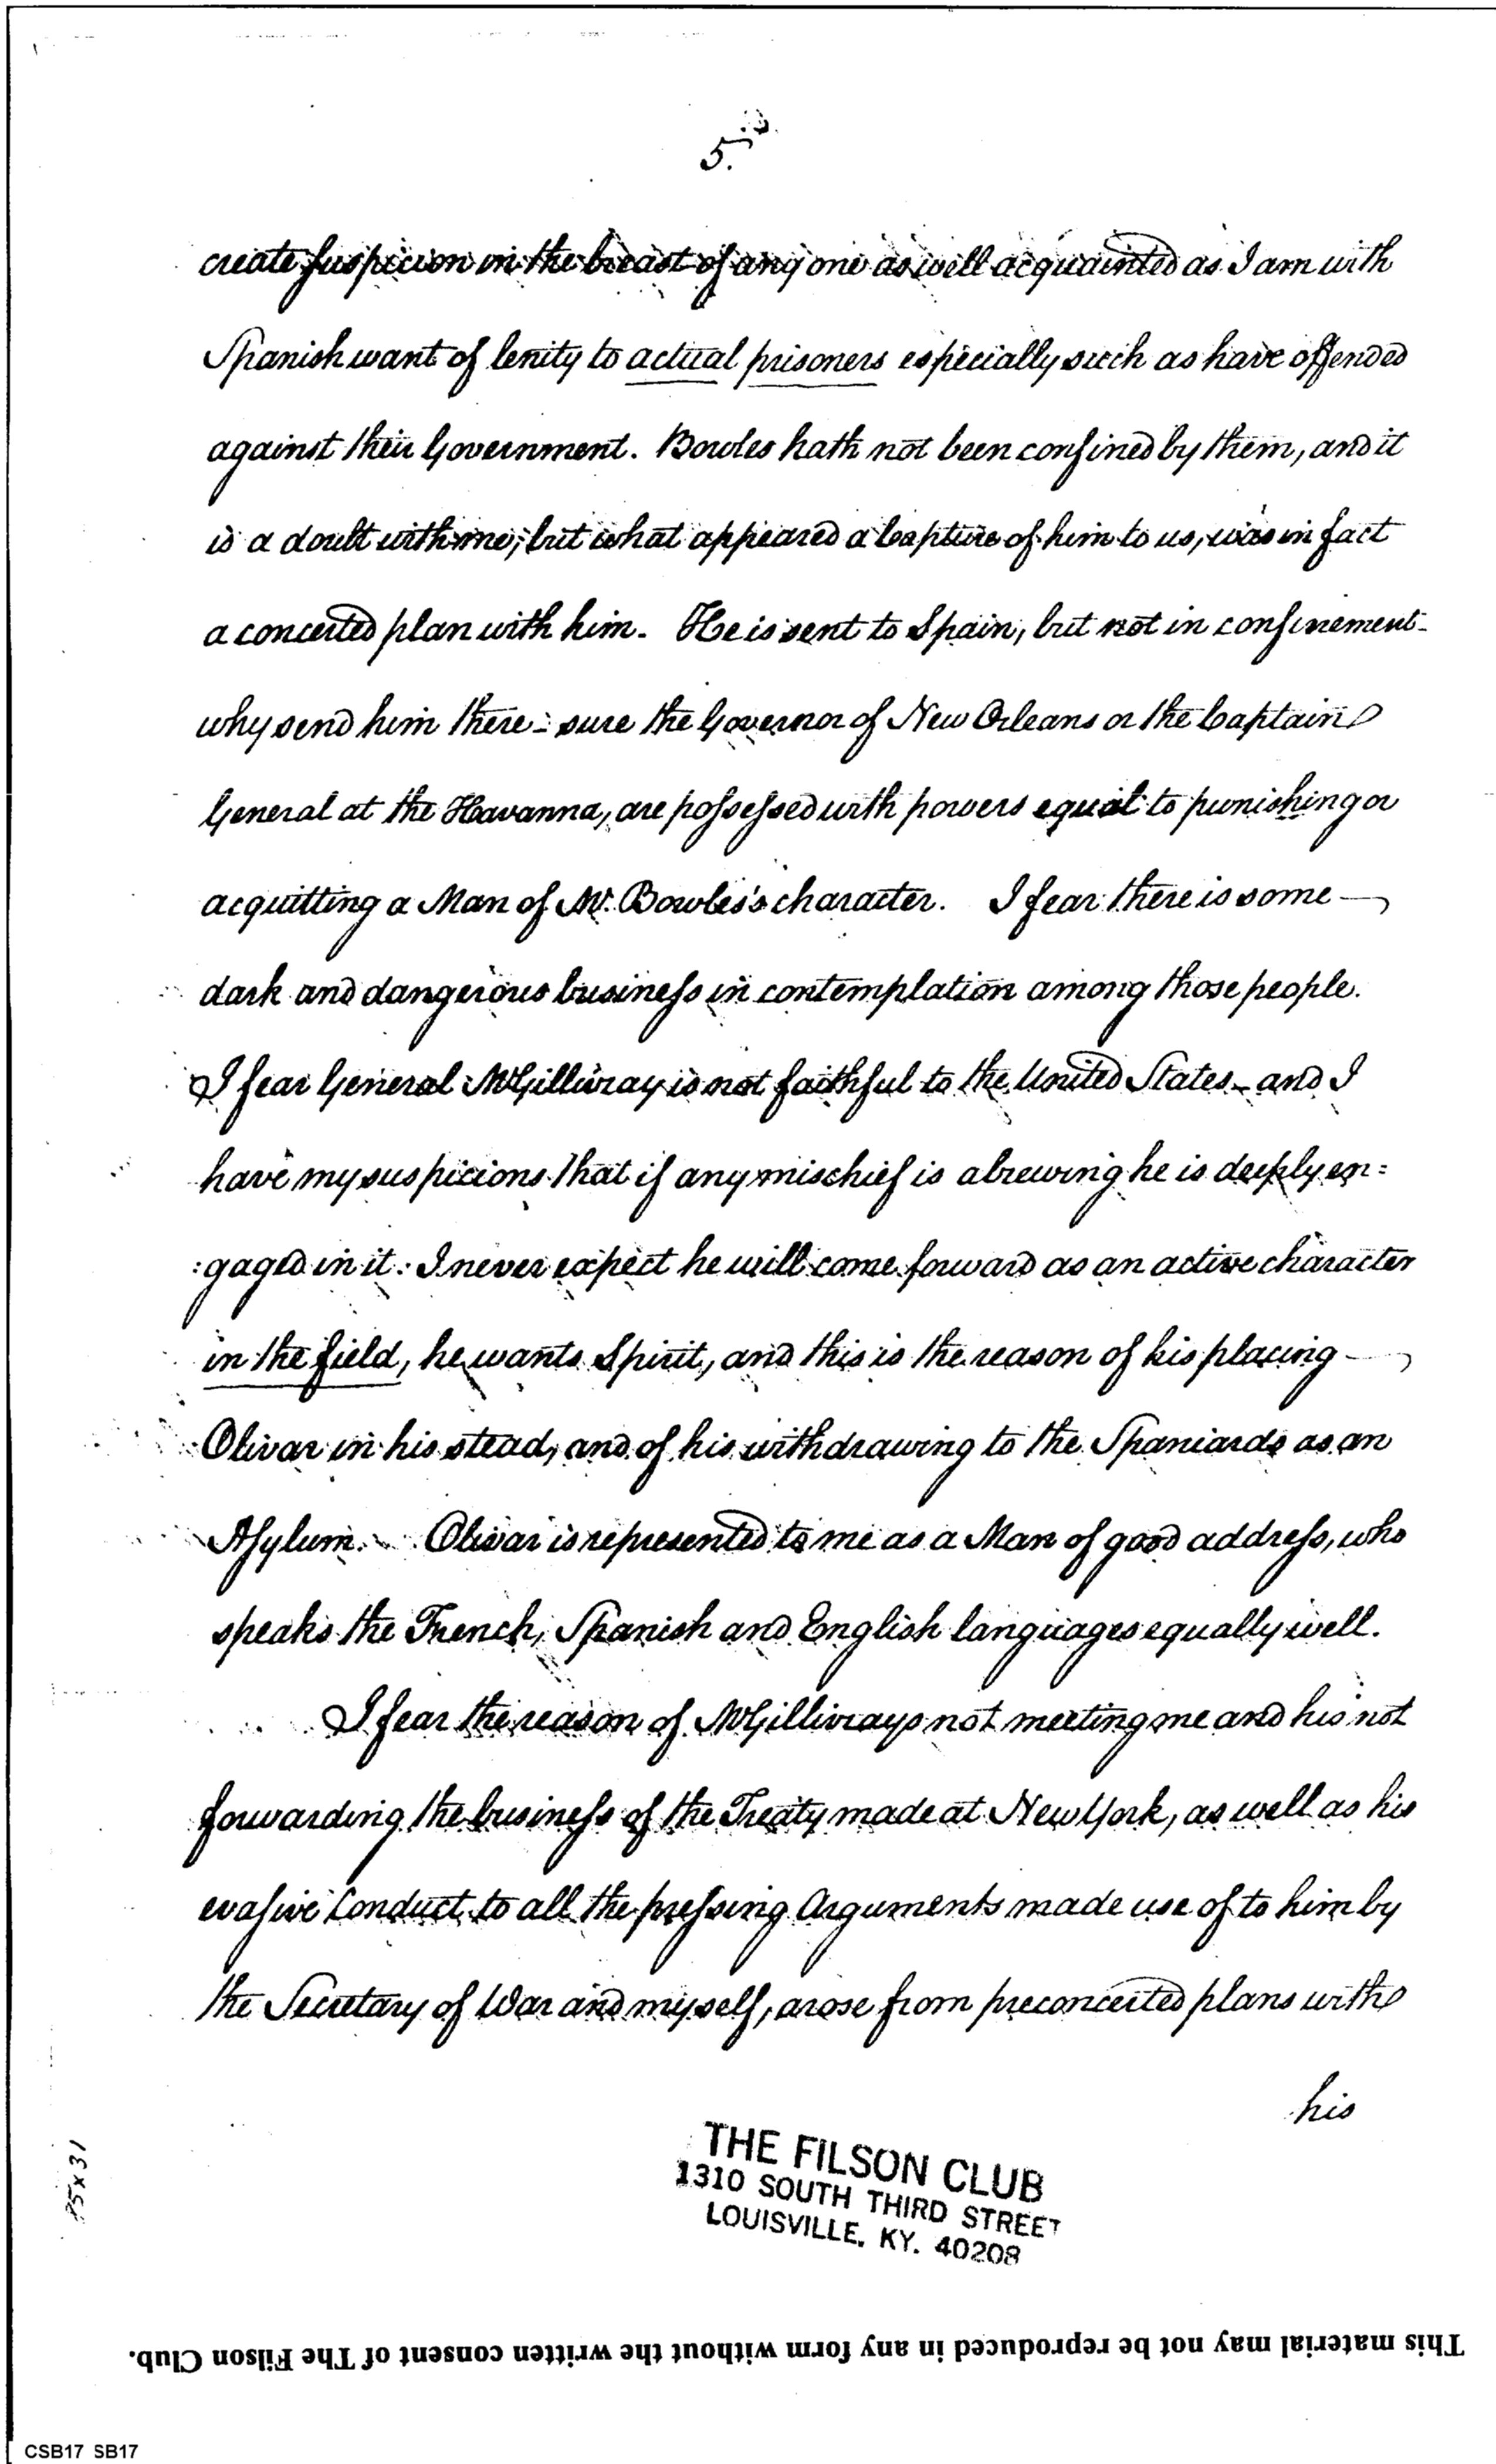 5.
create suspicion in the breast of any one as well acquainted as I am with
Spanish want of lenity to actual prisoners especially such as have offended
against their Government. Bowles hath not been confined by them, and it
is a doubt with me, but what appeared a Capture of him to us, was in fact
a concerted plan with him. He is sent to Spain, but not in confinement-
why send him there - sure the Governor of New Orleans or the Captain
General at the Havanna, are possessed with powers equal to punishing or
acquitting a Man of Mr. Bowles's character. I fear there is some —
dark and dangerous business in contemplation among those people.
I fear General McGillivray is not faithful to the United States - and I
have my suspicions that if any mischief is abrewing he is deeply en=
:gaged in it. I never expect he will come forward as an active character
in the field, he wants Spirit, and this is the reason of his placing —
Olivar in his stead, and of his withdrawing to the Spaniards as an
Asylum. Olivar is represented to me as a Man of good address, who
speaks the French, Spanish and English languages equally well.
I fear the reason of McGillivrays not meeting me and his not
forwarding the business of the Treaty made at New York, as well as his
evasive Conduct to all the pressing Arguments made use of to him by
the Secretary of War and myself, arose from preconcerted plans with
his
THE FILSON CLUB
1310 SOUTH THIRD STREET
LOUISVILLE, KY. 40208
This material may not be reproduced in any form without the written consent of The Filson Club.
CSB17 SB17